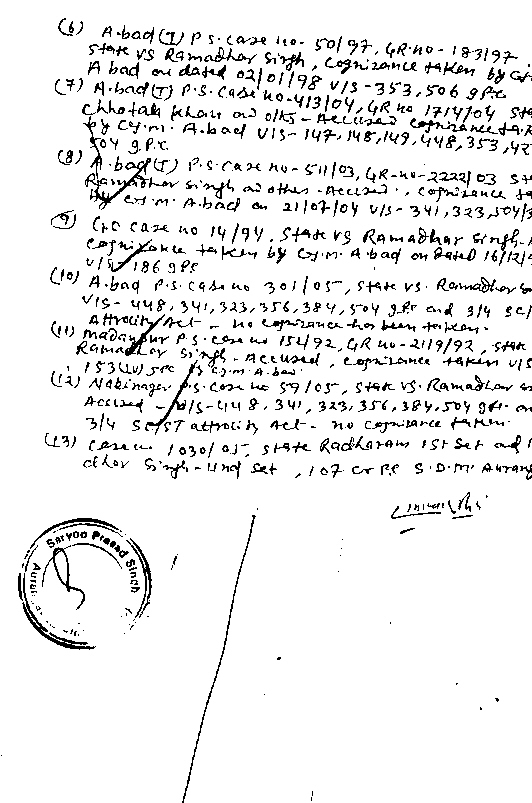 (6) A.bad (T) P.S. case no- 50/97, GR.no- 183/97
State vs Ramadhar Singh, Cognizance taken by
A bad on dated 02/01/98 U/S- 353, 506 IPC
(7) A.bad (T) P.S. case no- 413/04, GR no 1714/04
Chhotah Khan - Accused cognizance
by C.J.M. A.bad U/S- 147, 148, 149, 448, 353,
504 I.P.C.
(8) A.bad (T) P.S. case no- 511/03, GR-no- 2222/03
Ramadhar Singh - Accused, cognizance
by C.J.M. A.bad on 21/07/04 U/S- 341, 323, 504/
(9) case no 14/94, State vs Ramadhar Singh-
Cognizance taken by C.J.M. A bad on dated 16/12/
U/S- 186 IPC
(10) A.bad P.S. case no 301/05, State vs. Ramadhar
U/S- 448, 341, 323, 356, 384, 504 IPC and 3/4
Attrocity Act - no cognizance has been taken.
(11) Madanpur P.S. case no 154/92, GR no- 2119/92, State
Ramadhar Singh - Accused, cognizance taken U/S
by C.J.M. A.bad
(12) Nabinagar P.S. case no 59/05, State vs. Ramadhar
Accused - U/S- 448, 341, 323, 356, 384, 504 IPC
3/4 SC/ST attrocity Act - no cognizance taken.
(13) case no 1030/05, State Radharam 1st Set and
dhar Singh - IInd Set, 107 Cr.P.C S.D.M.
Saryoo Prasad Singh